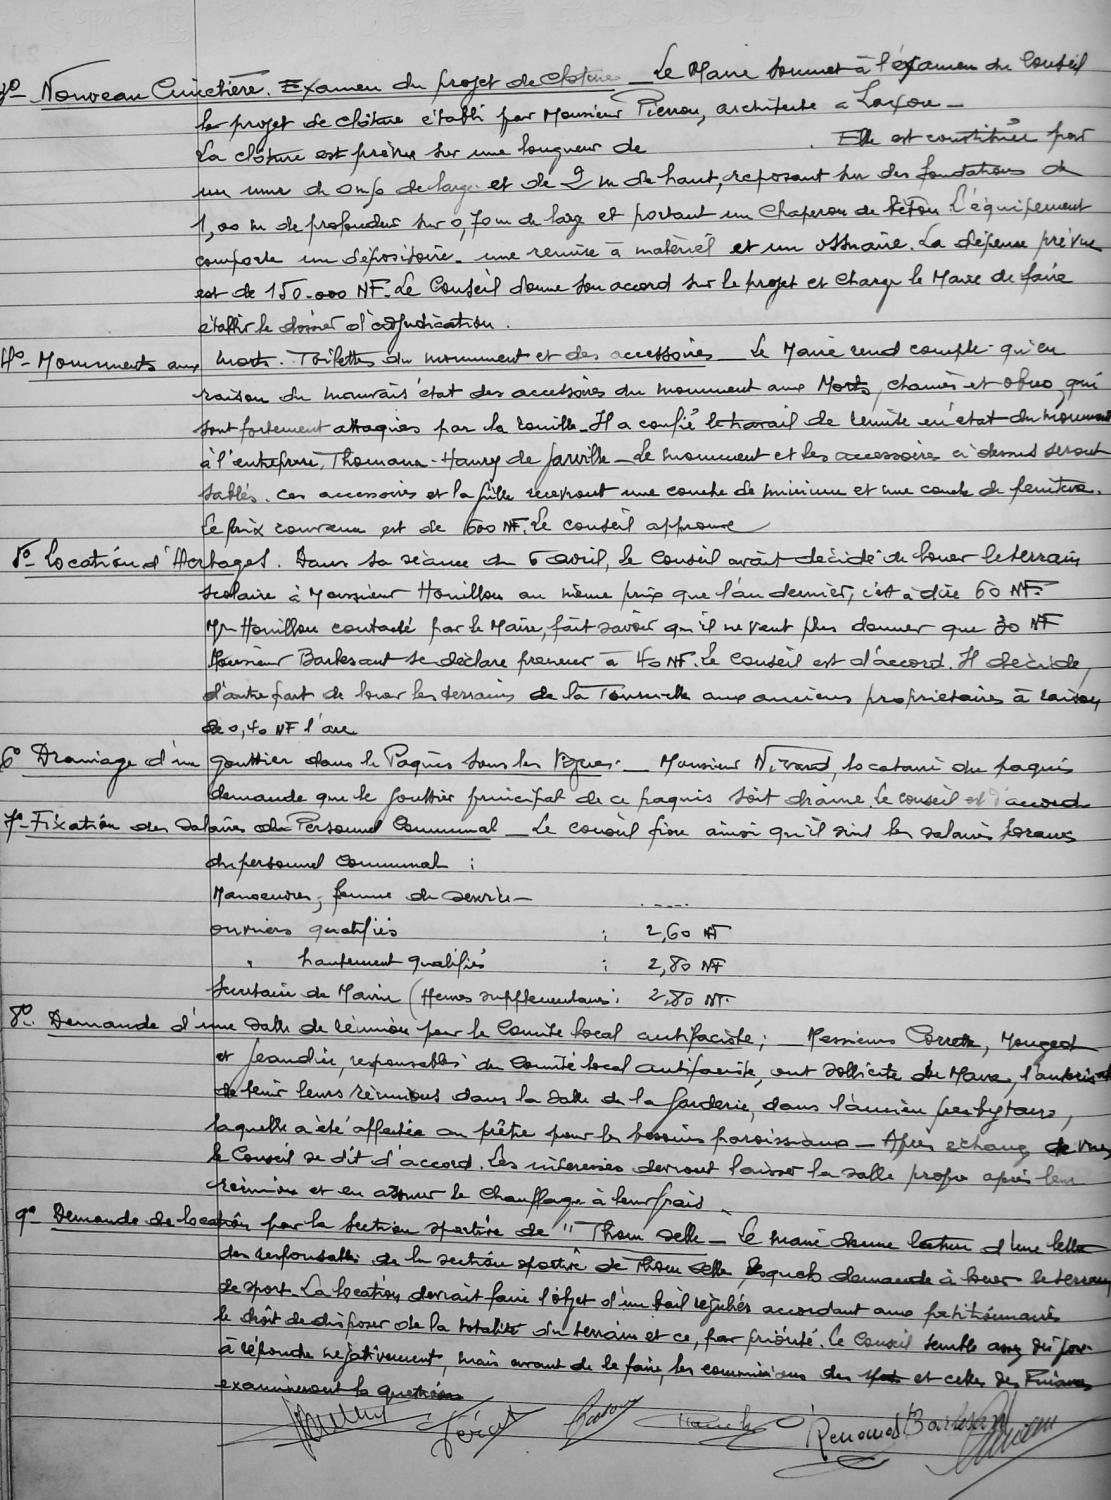 3° - Nouveau Cimetière. Examen du projet de clôture - Le Maire soumet à l'éxamen du Conseil
le projet de clôture établi par Monsieur Pierron, architecte à Laxou -
La clôture est prévue sur une longueur de . Elle est constituée par
un mur de 0m50 de large et de 2 m de haut, reposant sur des fondations de
1,00 m de profondeur sur 0,70 m de large et portant un chaperon de béton L'équipement
comporte un dépositoire - une remise à matériel et un ossuaire. La dépense prévue
est de 150.000 NF. Le Conseil donne son accord sur le projet et charge le Maire de faire
établir le dossier d'adjudication.
4° - Monuments aux morts. Toilettes du monument et des accessoires - Le Maire rend compte qu'en
raison du mauvais état des accessoires du monument aux Morts, chaines et obus, qui
sont fortement attaqués par la rouille - Il a confié le travail de remise en état du monument
à l'entreprise Thomann-Hanry de Jarville - Le monument et les accessoires ci dessus seront
sablés. Ces accessoires et la grille recevront une couche de minium et une couche de peinture.
Le prix convenu est de 600 NF. Le conseil approuve
5° - Location d'Herbages. Dans sa séance du 6 avril, le Conseil avait décidé de louer le terrain
scolaire à Monsieur Houillon au même prix que l'an dernier, c'est à dire 60 NF.
Mr Houillon contacté par le Maire, fait savoir qu'il ne veut plus donner que 30 NF
Monsieur Barbesant se déclare preneur à 40 NF. Le Conseil est d'accord. Il décide,
d'autre part de louer les terrains de la Tournelle aux anciens propriétaires à raison
de 0,40 NF l'are
6° Drainage d'un gouttier dans le Paquis sous les Vignes. - Monsieur Nivard, locataire du paquis
demande que le gouttier principal de ce paquis soit drainé. Le conseil est d'accord
7° - Fixation des Salaires du Personnel Communal - Le conseil fixe ainsi qu'il suit les salaires horaires
du personnel Communal :
Manoeuvres, femme de service -
ouvriers qualifiés : 2,60 NF
" hautement qualifiés : 2,80 NF
Secrétaire de Mairie (Heures supplémentaires : 2,80 NF.
8° - Demande d'une salle de réunion pour le Comité local antifaciste ; - Messieurs Mougeot
et Jeandin, responsables du Comité local antifaciste, ont sollicité du Maire, l'autorisat
de tenir leurs réunions dans la salle de la Garderie, dans l'ancien presbytère,
laquelle a été affectée au prêtre pour les besoins paroissiaux - Après echange de vues
le Conseil se dit d'accord. Les intéressés devront laisser la salle propre après leur
réunion et en assurer le chauffage à leur frais
9° - Demande de location par la section sportive de "Thom selle - Le maire donne lecture d'une lettre
des responsables de la section sportive de Thom selle, lesquels demande à louer le terrain
de sport. La location devrait faire l'objet d'un bail régulier accordant aux petitionnaires
le droit de disposer de la totalité du terrain et ce, par priorité. Le Conseil semble assez disposé
à répondre négativement, mais avant de le faire, les commissions des sports et celles des Finances
examineront la question
Renoud Barbesant